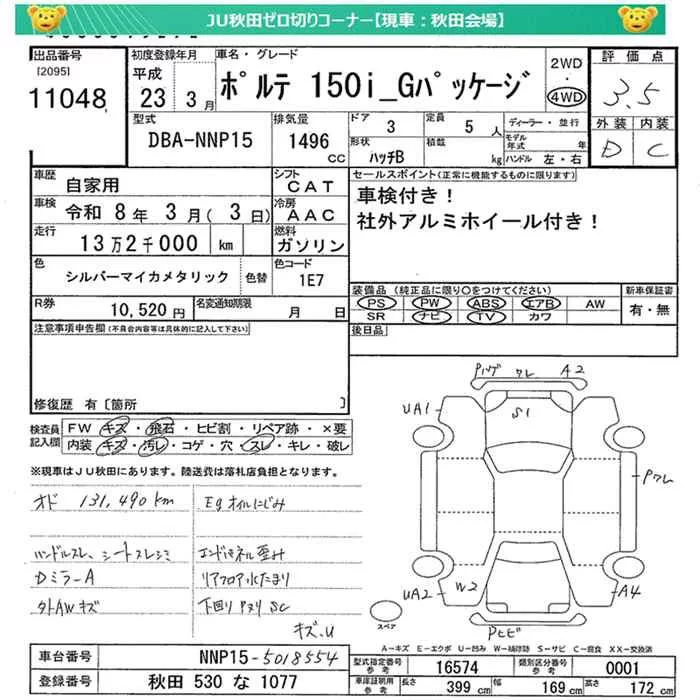 JU秋田ゼロ切りコーナー【現車：秋田会場】
出品番号
[2095]
11048
初度登録年月
平成
23 3月
車名・グレード
ポルテ 150i_Gパッケージ
2WD
・
4WD
評価点
3.5
外装 内装
D C
型式
DBA-NNP15
排気量
1496
cc
ドア
3
定員
5 人
形状
ハッチB
積載
kg
ディーラー・並行
モデル年式 年
ハンドル 左・右
車歴
自家用
シフト
CAT
車検
令和 8年 3月(3日)
冷房
AAC
走行
13万2千000 km
燃料
ガソリン
色
シルバーマイカメタリック
色替
色コード
1E7
R券
10,520円
名変通知期限
月 日
セールスポイント(正常に機能するものに限ります)
車検付き！
社外アルミホイール付き！
装備品 (純正品に限り○をつけてください)
PS PW ABS エアB AW
SR ナビ TV カワ
新車保証書
有・無
後日品
注意事項申告欄(不具合内容等は具体的に記入して下さい)
修復歴 有[箇所 ]
検査員記入欄
FW キズ・飛石・ヒビ割・リペア跡・×要
内装 キズ・汚レ・コゲ・穴・スレ・キレ・破レ
※現車はJU秋田にあります。陸送費は落札店負担となります。
オド 131,490km
ハンドルスレ、シートスレシミ
Dミラ-A
外AWキズ
Egオイルにじみ
エンドパネル歪み
リアフロア水たまり
下回りPヌリSC
キズ、U
Pハゲ ワレ A2
UA1
S1
Pワレ
UA2
W2
A4
Pヒビ
スペア
A－キズ E－エクボ U－凹み W－補修跡 S－サビ C－腐食 XX－交換済
車台番号
NNP15-5018554
登録番号
秋田 530 な 1077
型式指定番号
参考
16574
類別区分番号
参考
0001
車庫証明用
参考
長さ
399 cm
幅
169 cm
高さ
172 cm